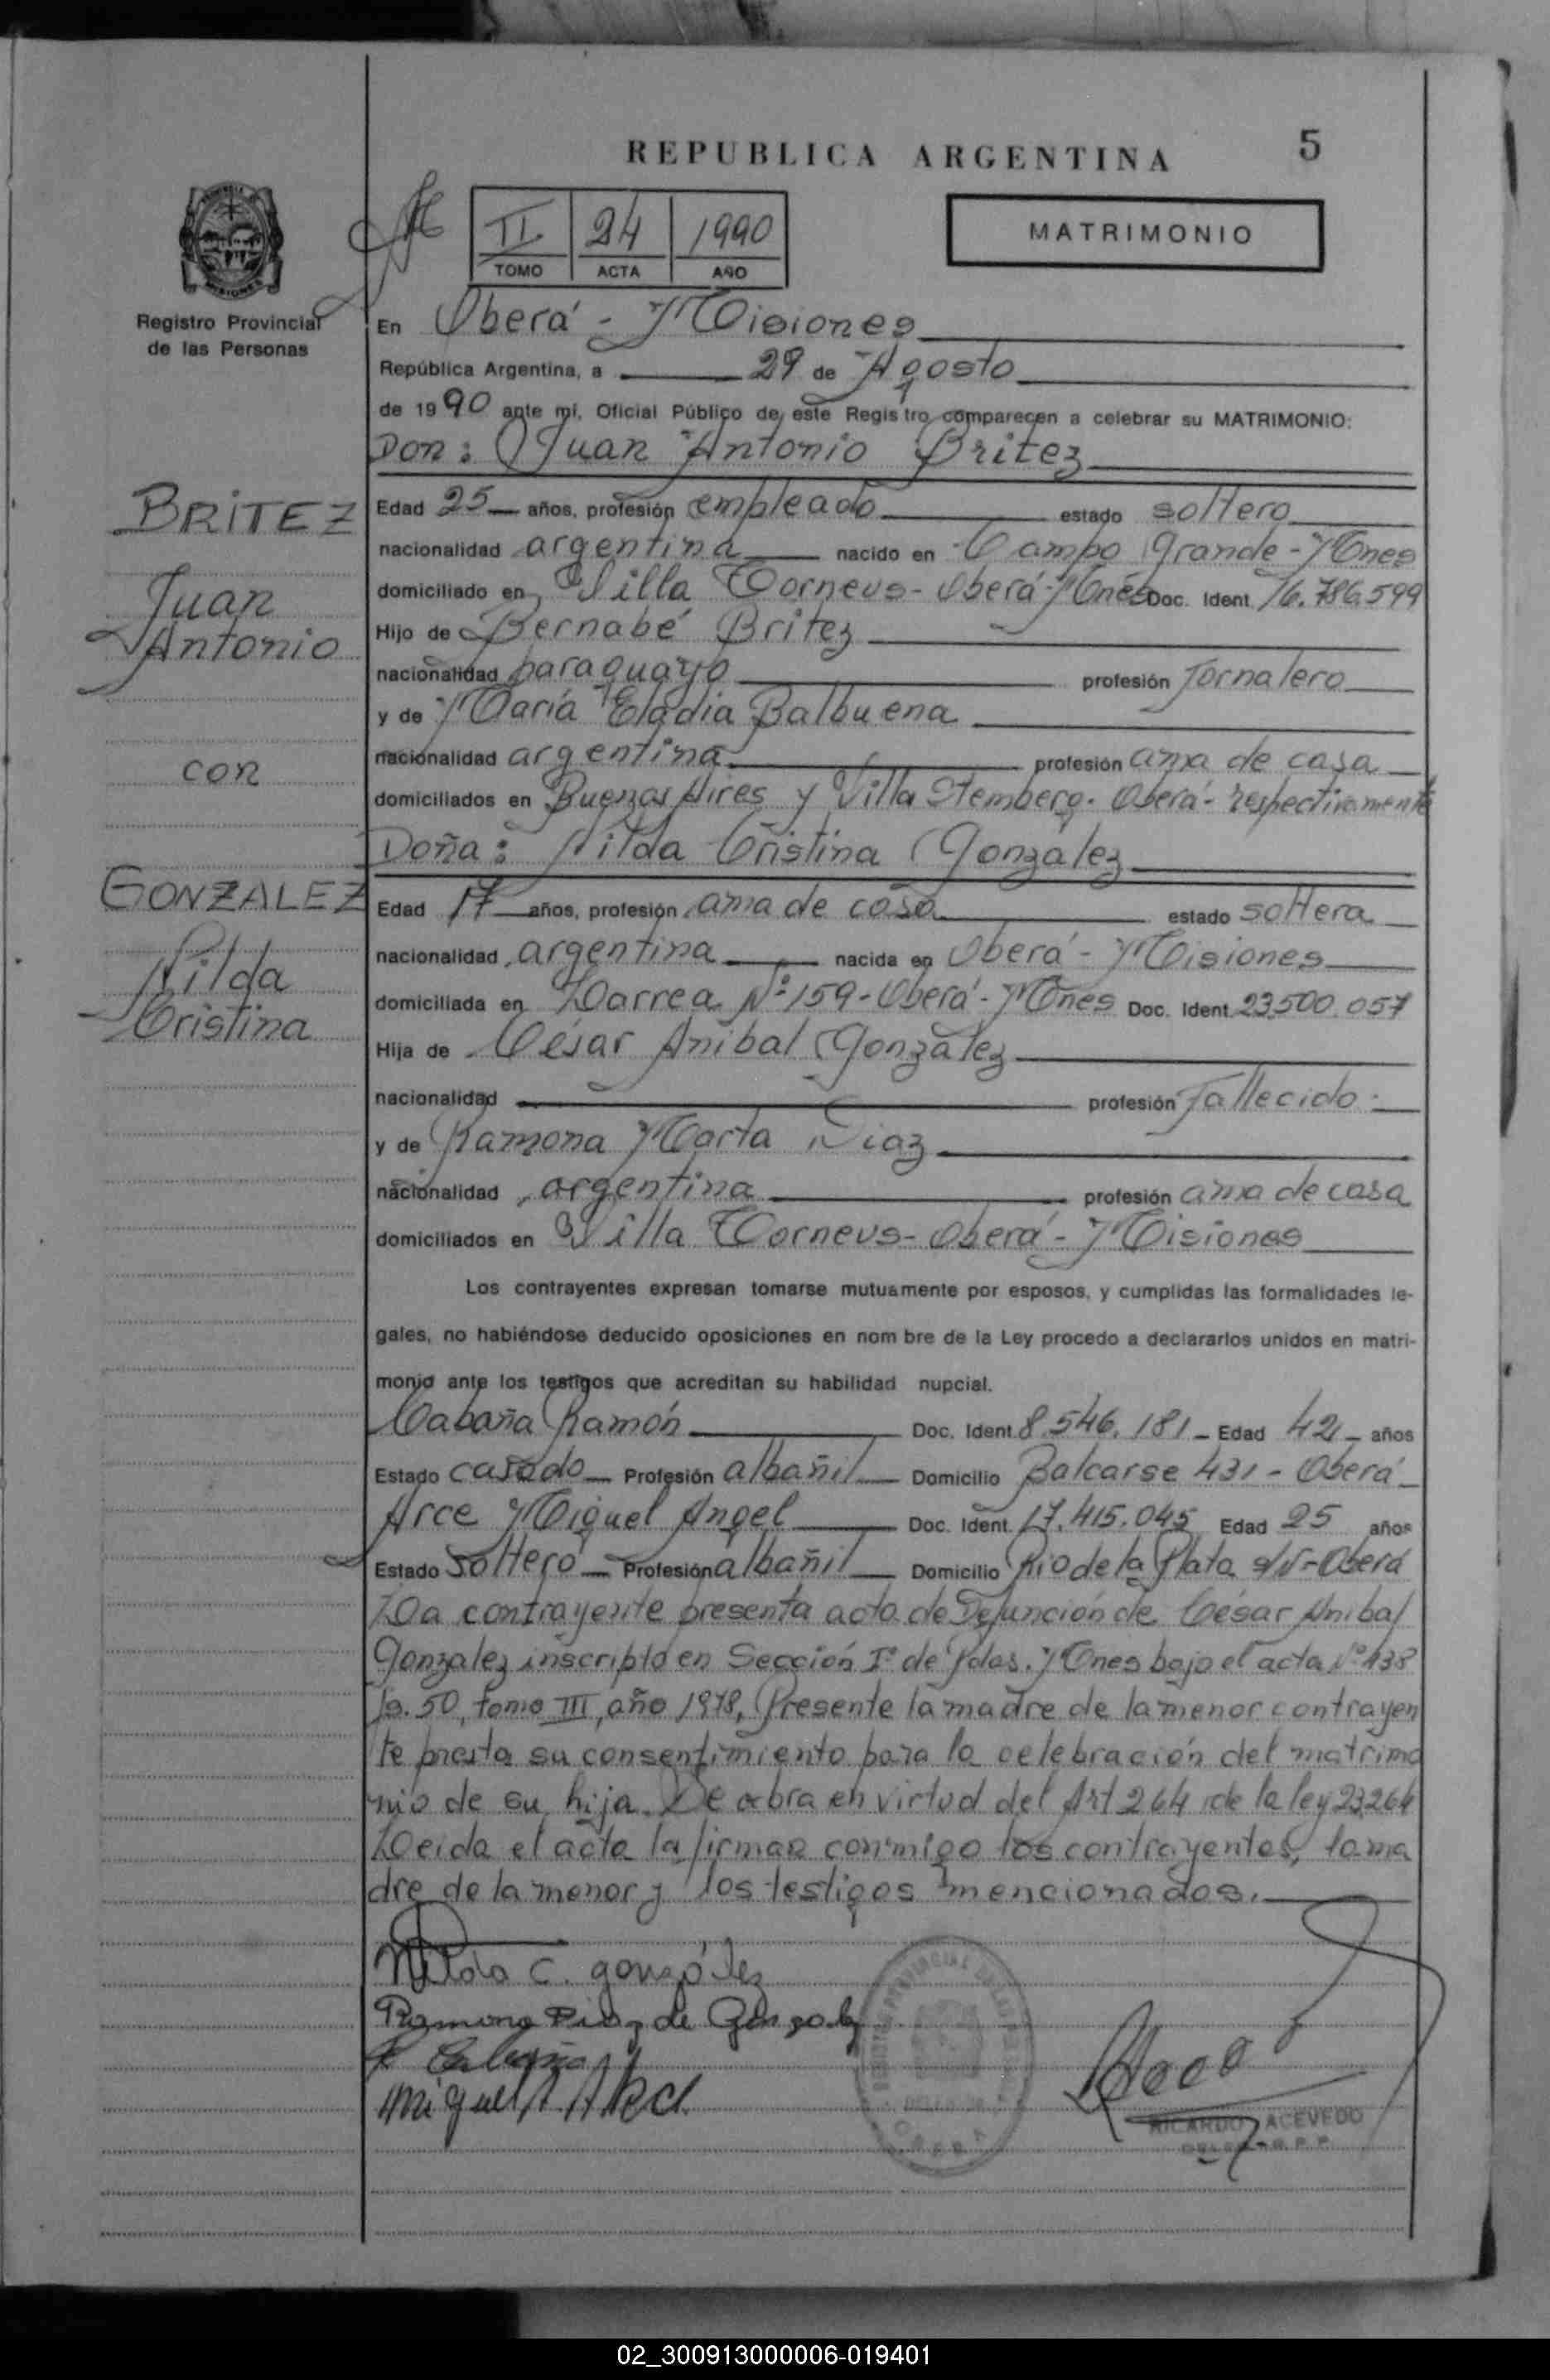 REPUBLICA ARGENTINA
5
II 24 1990
TOMO ACTA AÑO
MATRIMONIO
MISIONES
Registro Provincial
de las Personas
En Oberá - Misiones
República Argentina, a 29 de Agosto
de 1990 ante mí, Oficial Público de este Registro comparecen a celebrar su MATRIMONIO:
Don: Juan Antonio Britez
BRITEZ
Juan
Antonio
con
GONZALEZ
Nilda
Cristina
Edad 25 años, profesión empleado estado soltero
nacionalidad argentina nacido en Campo Grande - Mnes
domiciliado en Villa Torneus - Oberá - Mnes Doc. Ident. 16.786.599
Hijo de Bernabé Britez
nacionalidad paraguayo profesión Jornalero
y de María Eladia Balbuena
nacionalidad argentina profesión ama de casa
domiciliados en Buenos Aires y Villa Stemberg - Oberá - respectivamente
Doña: Nilda Cristina Gonzalez
Edad 17 años, profesión ama de casa estado soltera
nacionalidad argentina nacida en Oberá - Misiones
domiciliada en Larrea Nº 159 - Oberá - Mnes Doc. Ident. 23.500.057
Hija de César Anibal Gonzalez
nacionalidad profesión Fallecido.
y de Ramona Marta Diaz
nacionalidad argentina profesión ama de casa
domiciliados en Villa Torneus - Oberá - Misiones
Los contrayentes expresan tomarse mutuamente por esposos, y cumplidas las formalidades le-
gales, no habiéndose deducido oposiciones en nom bre de la Ley procedo a declararlos unidos en matri-
monio ante los testigos que acreditan su habilidad nupcial.
Cabaña Ramón Doc. Ident. 8.546.181 - Edad 42 - años
Estado casado Profesión albañil Domicilio Balcarse 431 - Oberá
Arce Miguel Angel Doc. Ident. 17.415.045 Edad 25 años
Estado soltero Profesión albañil Domicilio Rio de la Plata s/N - Oberá
La contrayente presenta acta de Defunción de César Anibal
Gonzalez inscripto en Sección Iª de Pdas. Mnes bajo el acta Nº 438
fs. 50, tomo III, año 1978, Presente la madre de la menor contrayen
te presta su consentimiento para la celebración del matrimo
nio de su hija. Se obra en virtud del Art 264 de la ley 23.264
Leida el acta la firman conmigo los contrayentes, la ma
dre de la menor y los testigos mencionados.
Nilda C. gonzález
Ramona Diaz de Gonzalez
R Cabaña
Miguel A. Arce
RICARDO ACEVEDO
02_300913000006-019401